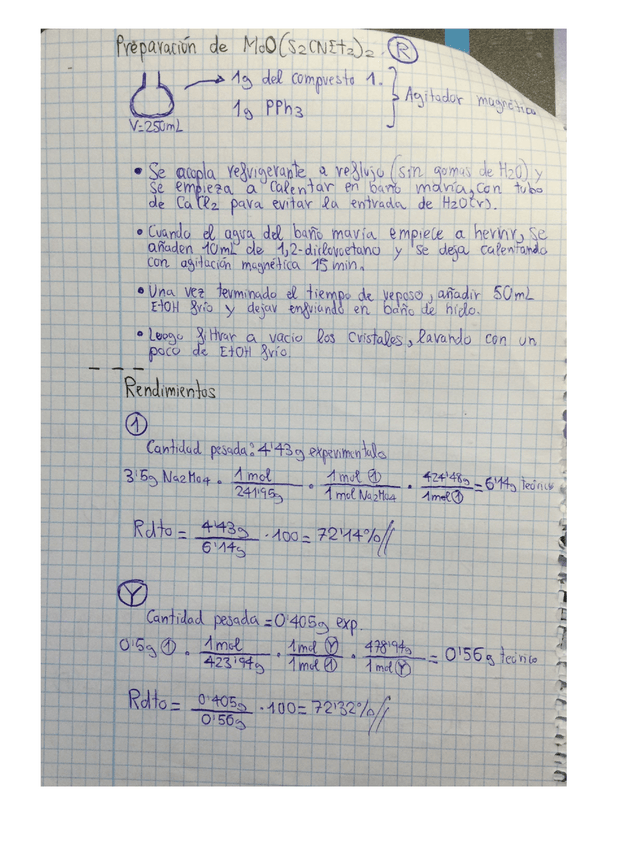 Preparación de MoO(S2CNEt2)2. R
1g del compuesto 1.
1g PPh3
Agitador magnético
V=250mL
• Se acopla refrigerante a reflujo (sin gomas de H2O) y
se empieza a calentar en baño maría, con tubo
de CaCl2 para evitar la entrada de H2O(v).
• Cuando el agua del baño maría empiece a hervir, se
añaden 10mL de 1,2-dicloroetano y se deja calentando
con agitación magnética 15 min.
• Una vez terminado el tiempo de reposo, añadir 50mL
EtOH frío y dejar enfriando en baño de hielo.
• Luego filtrar a vacio los cristales, lavando con un
poco de EtOH frío.
Rendimientos
1
Cantidad pesada: 4'43g experimentales
3'5g Na2MoO4 · 1mol / 241'95g · 1mol 1 / 1mol Na2MoO4 · 424'48g / 1mol 1 = 6'14g teórico
Rdto = 4'43g / 6'14g · 100 = 72'14%//
Y
Cantidad pesada = 0'405g exp.
0'5g 1 · 1mol / 423'94g · 1mol Y / 1mol 1 · 478'94g / 1mol Y = 0'56g teórico
Rdto = 0'405g / 0'56g · 100 = 72'32%//